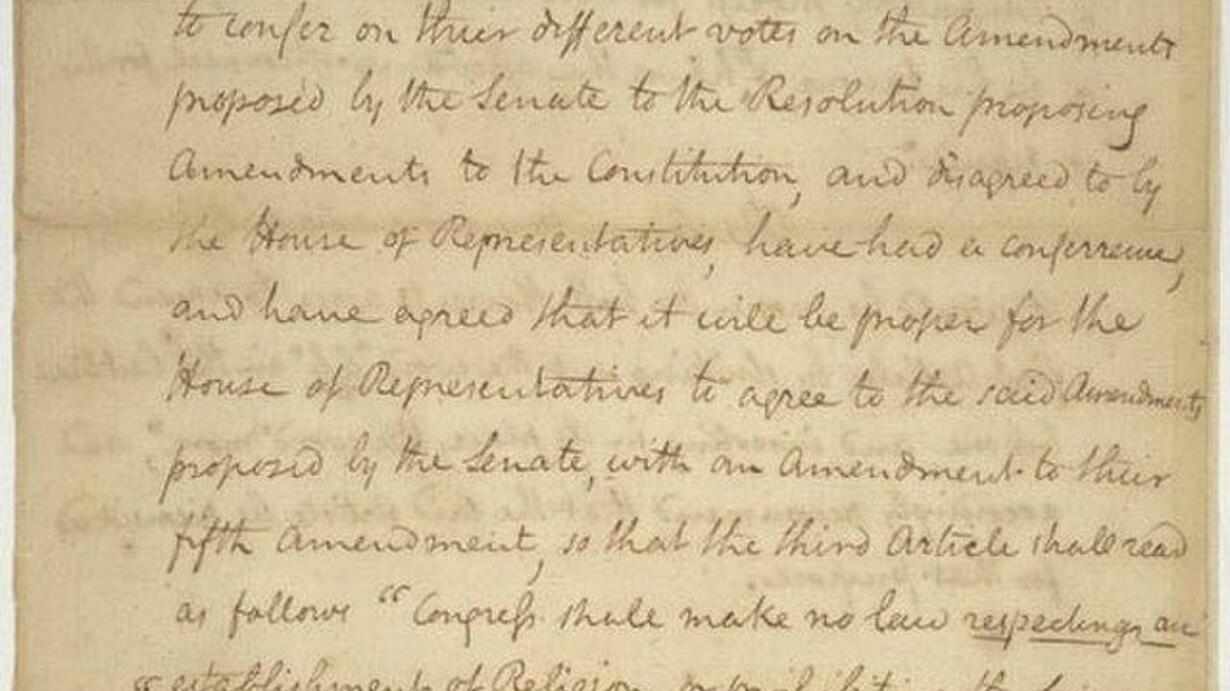 to confer on their different votes on the Amendments
proposed by the Senate to the Resolution proposing
Amendments to the Constitution, and disagreed to by
the House of Representatives, have had a conferrence,
and have agreed that it will be proper for the
House of Representatives to agree to the said Amendments
proposed by the Senate, with an Amendment to their
fifth Amendment, so that the third Article shall read
as follows "Congress shall make no law respecting an
"establishment of Religion, or prohibiting the